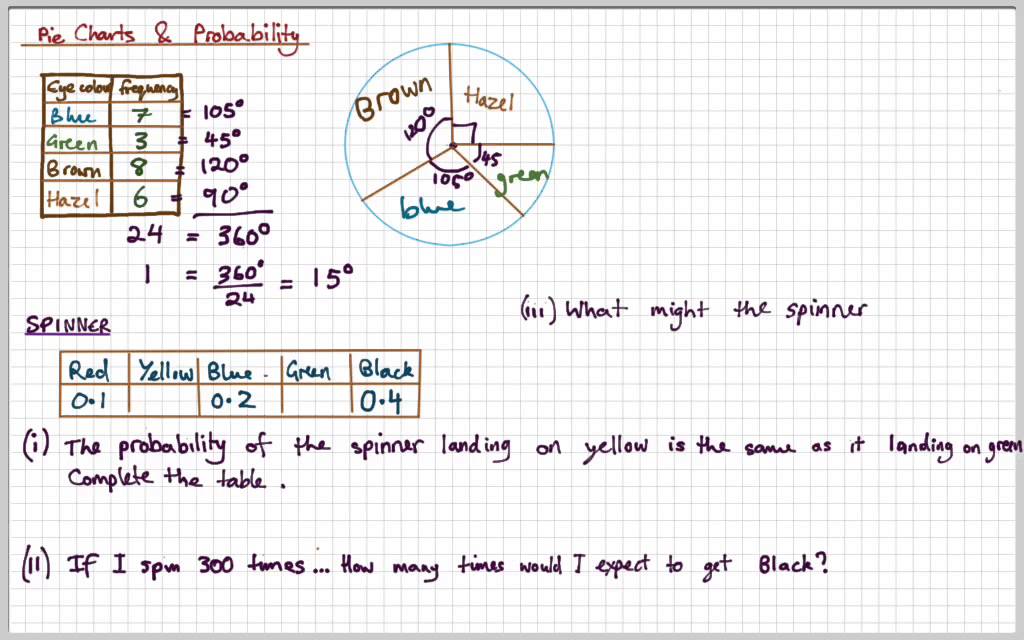 Pie Charts & Probability
Eye colour frequency
Blue 7 = 105°
Green 3 = 45°
Brown 8 = 120°
Hazel 6 = 90°
24 = 360°
1 = 360°/24 = 15°
Brown
Hazel
120°
45
105°
green
blue
(iii) What might the spinner
SPINNER
Red Yellow Blue. Green Black
0.1 0.2 0.4
(i) The probability of the spinner landing on yellow is the same as it landing on green
Complete the table.
(ii) If I spin 300 times... How many times would I expect to get Black?